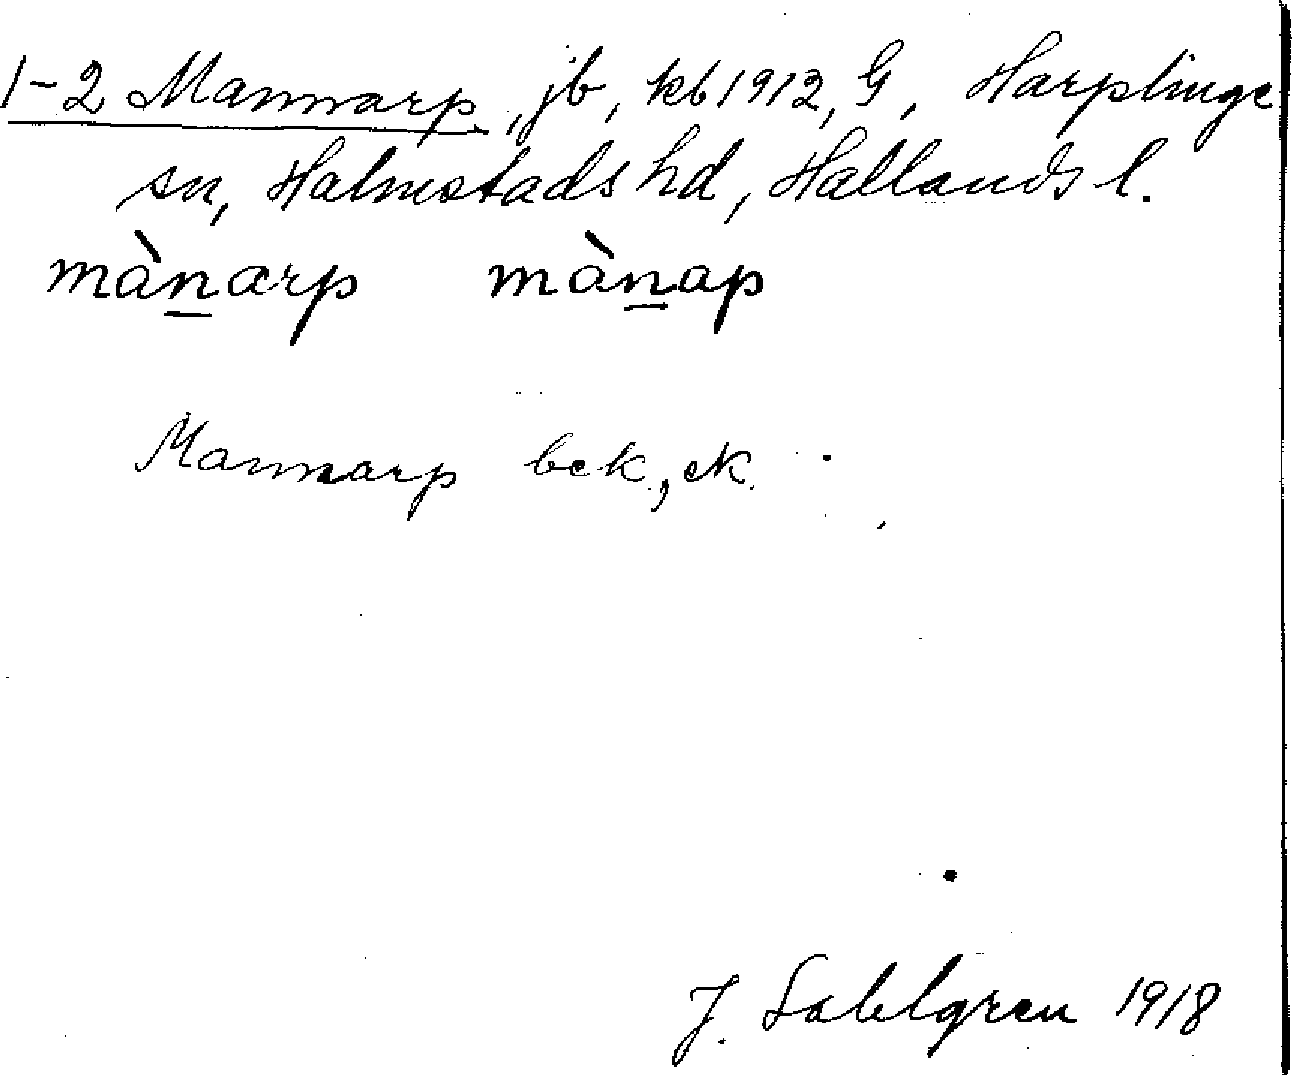 1-2 Mannarp, jb, kb 1912, G, Harplinge
sn, Halmstads hd, Hallands l.
màn̲arp màn̲ap
Mannarp bek, ek.
J. Sahlgren 1918